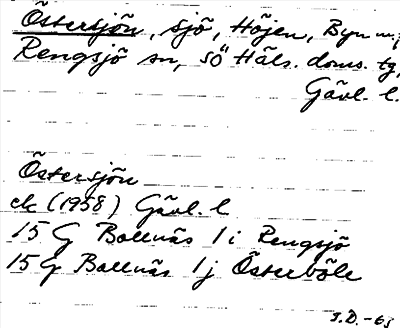 Östersjön, sjö, Höjen, Byn m.fl.
Rengsjö sn, sö Häls. doms. tg,
Gävl. l.
Östersjön
ek (1958) Gävl. l
15 G Bollnäs 1 i Rengsjö
15 G Bollnäs 1 j Österböle
S.D.-63